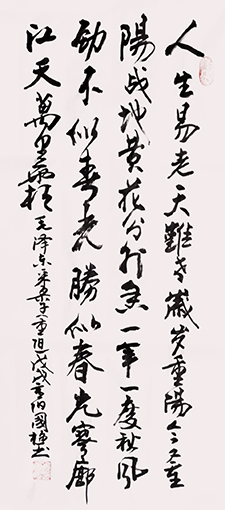 人生易老天難老歲歲重陽今又重
陽战地黄花分外香一年一度秋風
勁不似春光勝似春光寥廓
江天萬里霜毛泽东采桑子重阳戊戌